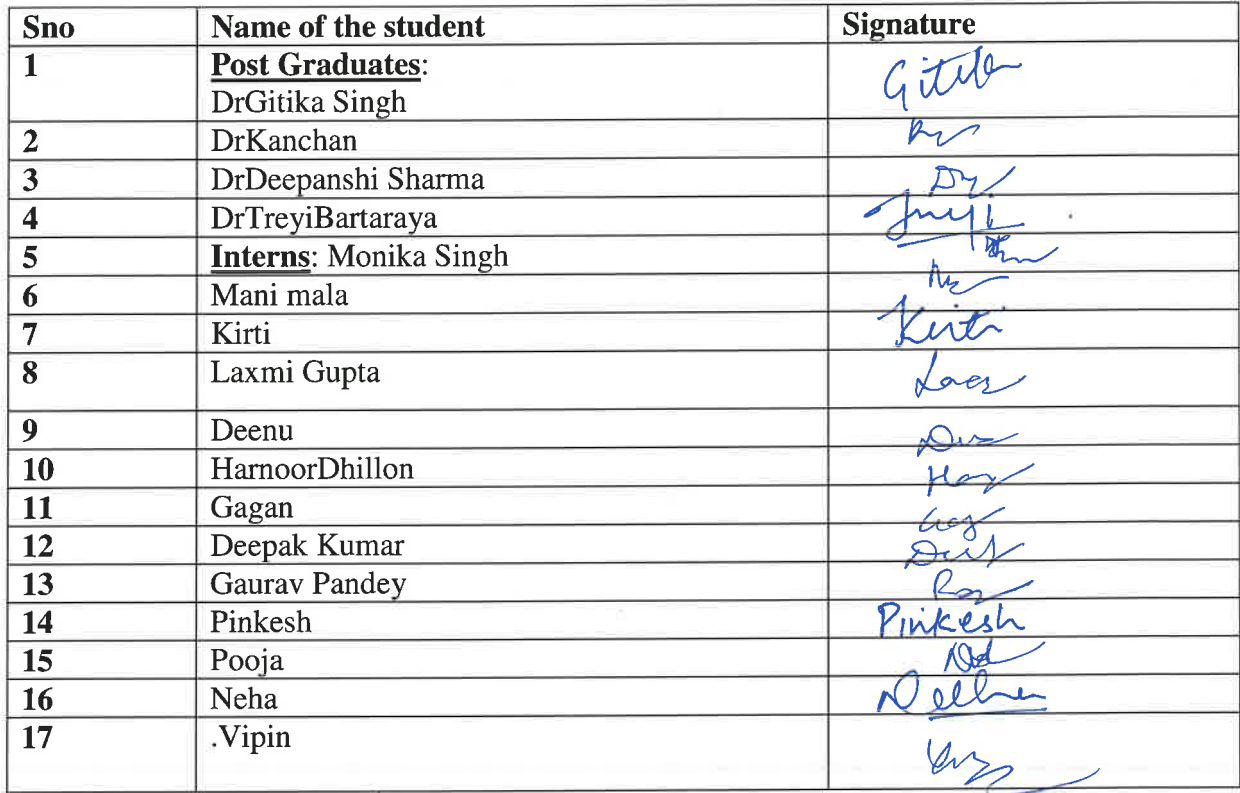 Sno Name of the student Signature
1 Post Graduates:
DrGitika Singh Gitika
2 DrKanchan
3 DrDeepanshi Sharma
4 DrTreyiBartaraya
5 Interns: Monika Singh
6 Mani mala
7 Kirti Kirti
8 Laxmi Gupta
9 Deenu
10 HarnoorDhillon
11 Gagan
12 Deepak Kumar
13 Gaurav Pandey
14 Pinkesh Pinkesh
15 Pooja
16 Neha
17 .Vipin